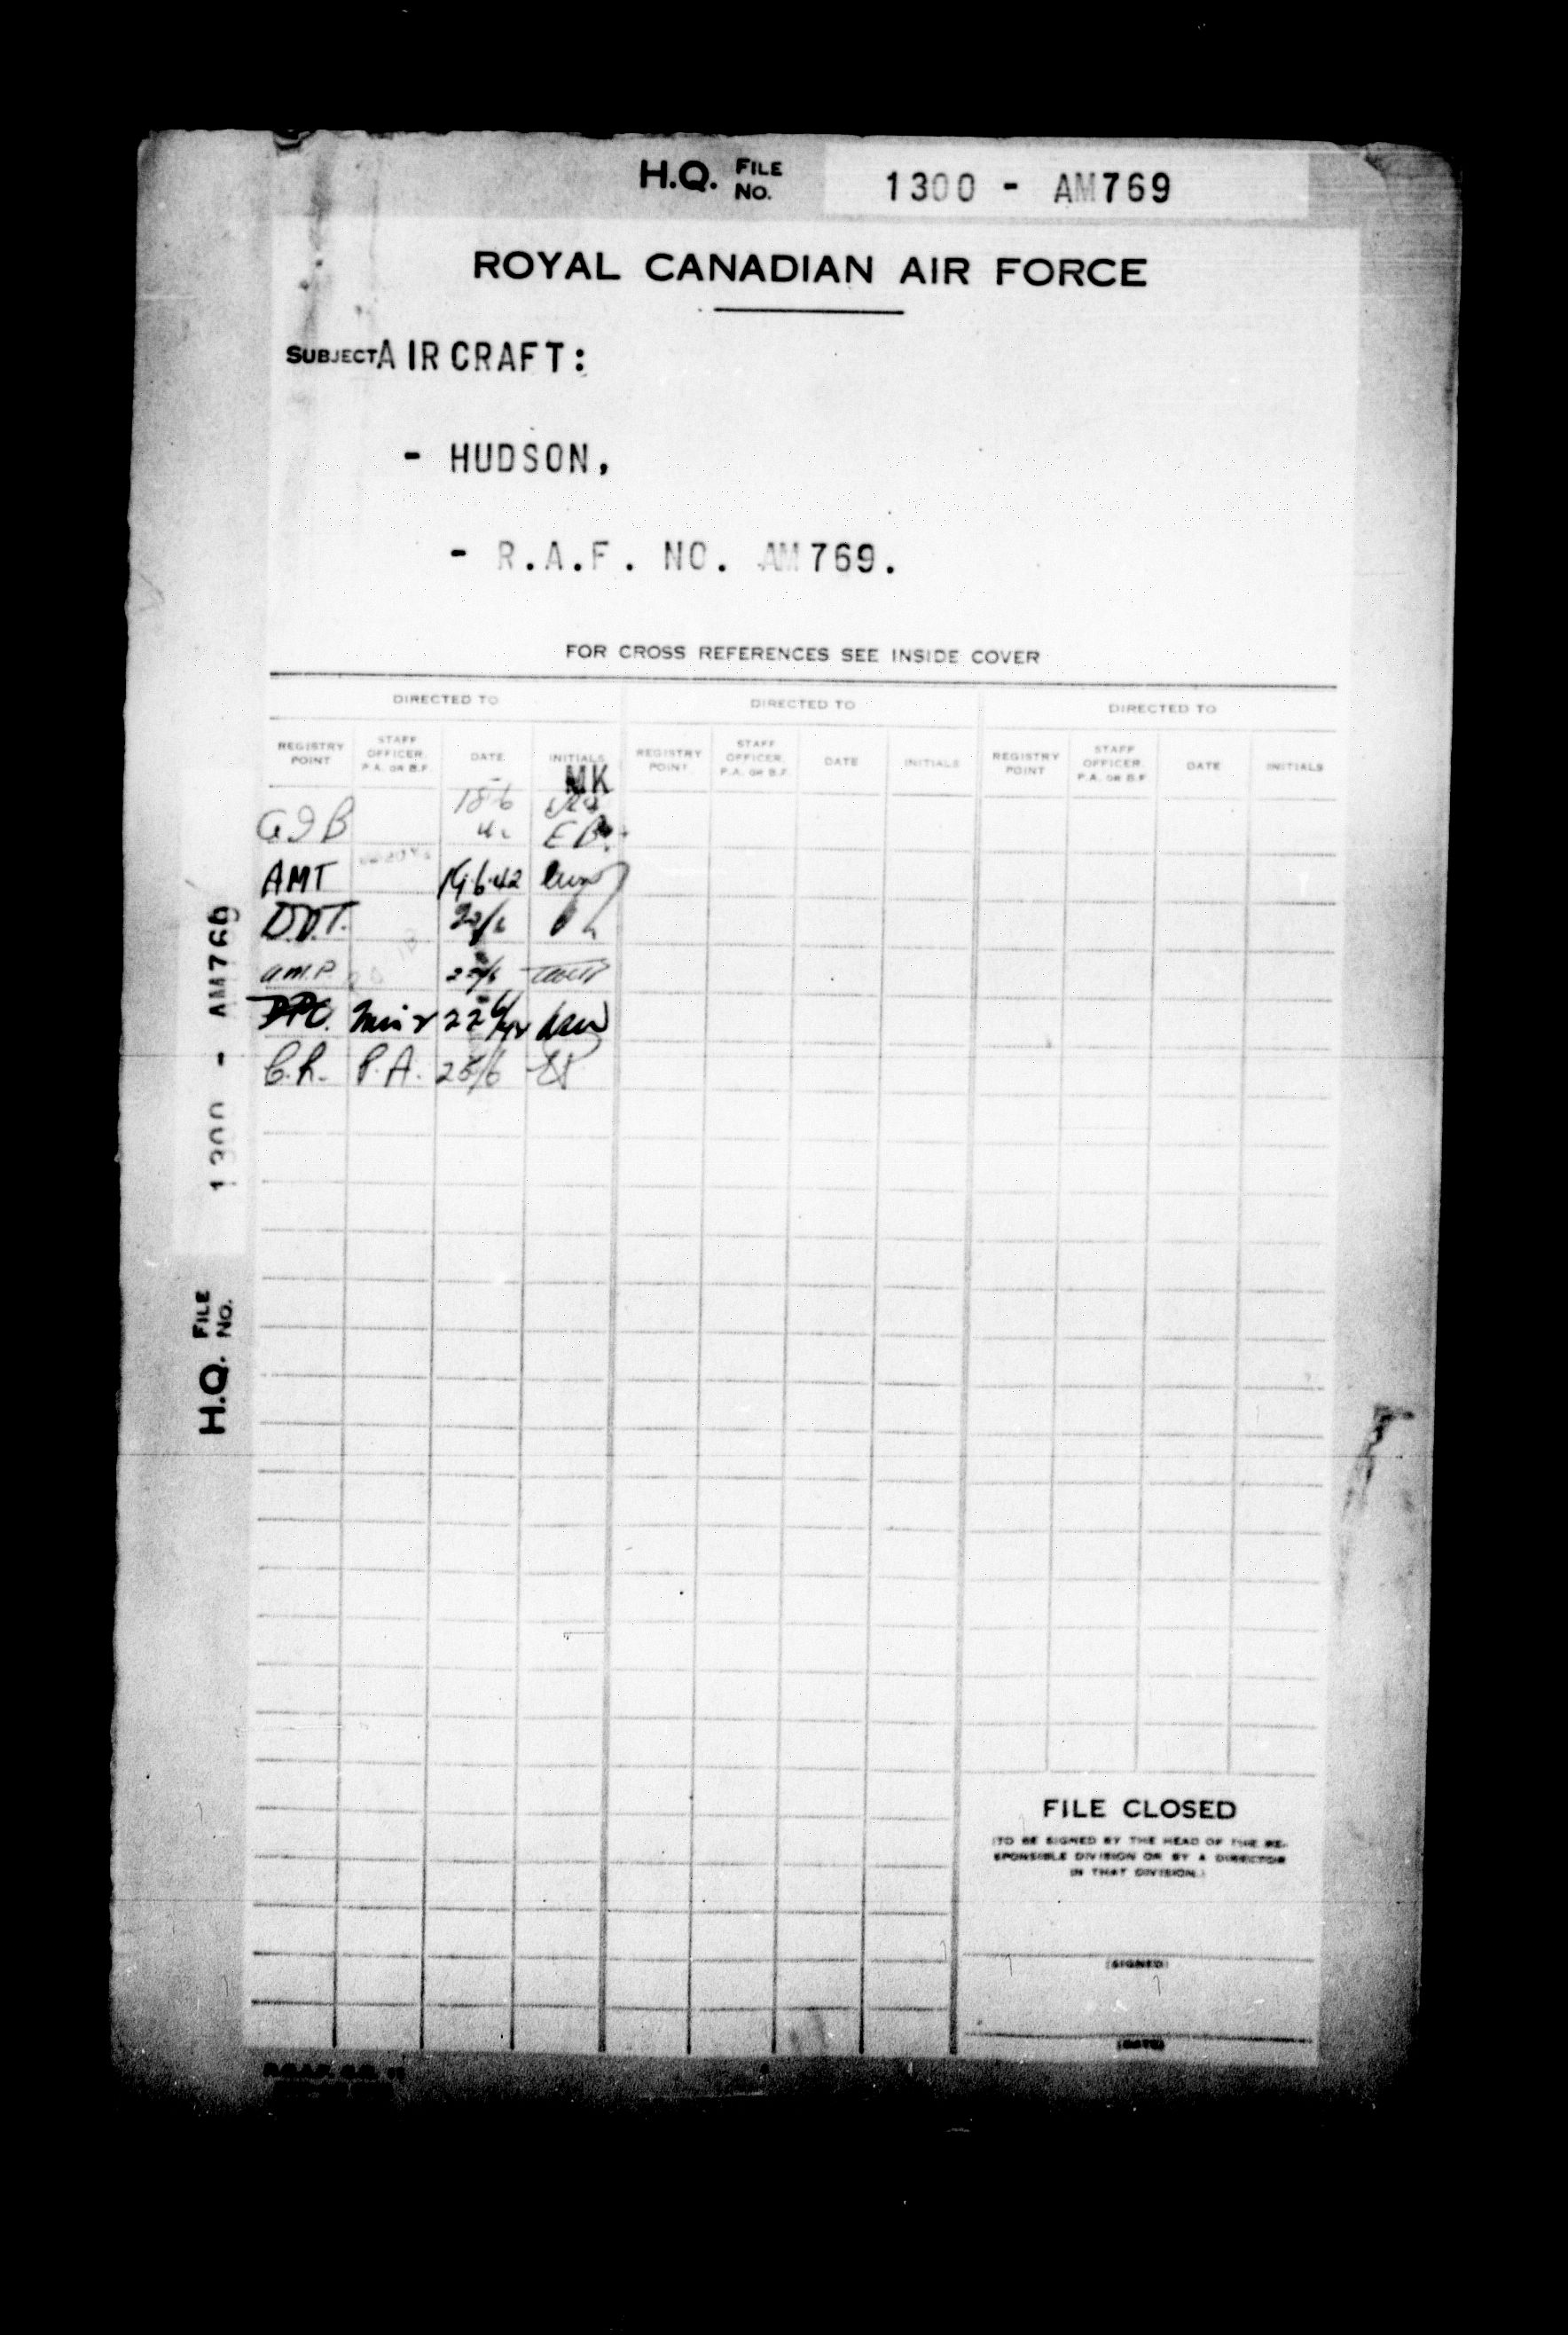 H.Q. FILE NO. 1300 - AM769
ROYAL CANADIAN AIR FORCE
SUBJECT AIRCRAFT:
- HUDSON,
- R.A.F. NO. AM769.
FOR CROSS REFERENCES SEE INSIDE COVER
DIRECTED TO DIRECTED TO DIRECTED TO
REGISTRY POINT STAFF OFFICER. P.A. OR B.F. DATE INITIALS REGISTRY POINT STAFF OFFICER. P.A. OR B.F. DATE INITIALS REGISTRY POINT STAFF OFFICER. P.A. OR B.F. DATE INITIALS
MK
18-6
EB
AMT 19.6.42
D.D.T.
a.m.P. 22/6
DPC. 22/6/42
C.R. P.A. 25/6
H.Q. FILE NO. 1300 - AM769
FILE CLOSED
(TO BE SIGNED BY THE HEAD OF THE RE-
SPONSIBLE DIVISION OR BY A DIRECTOR
IN THAT DIVISION.)
(SIGNED)
(DATE)